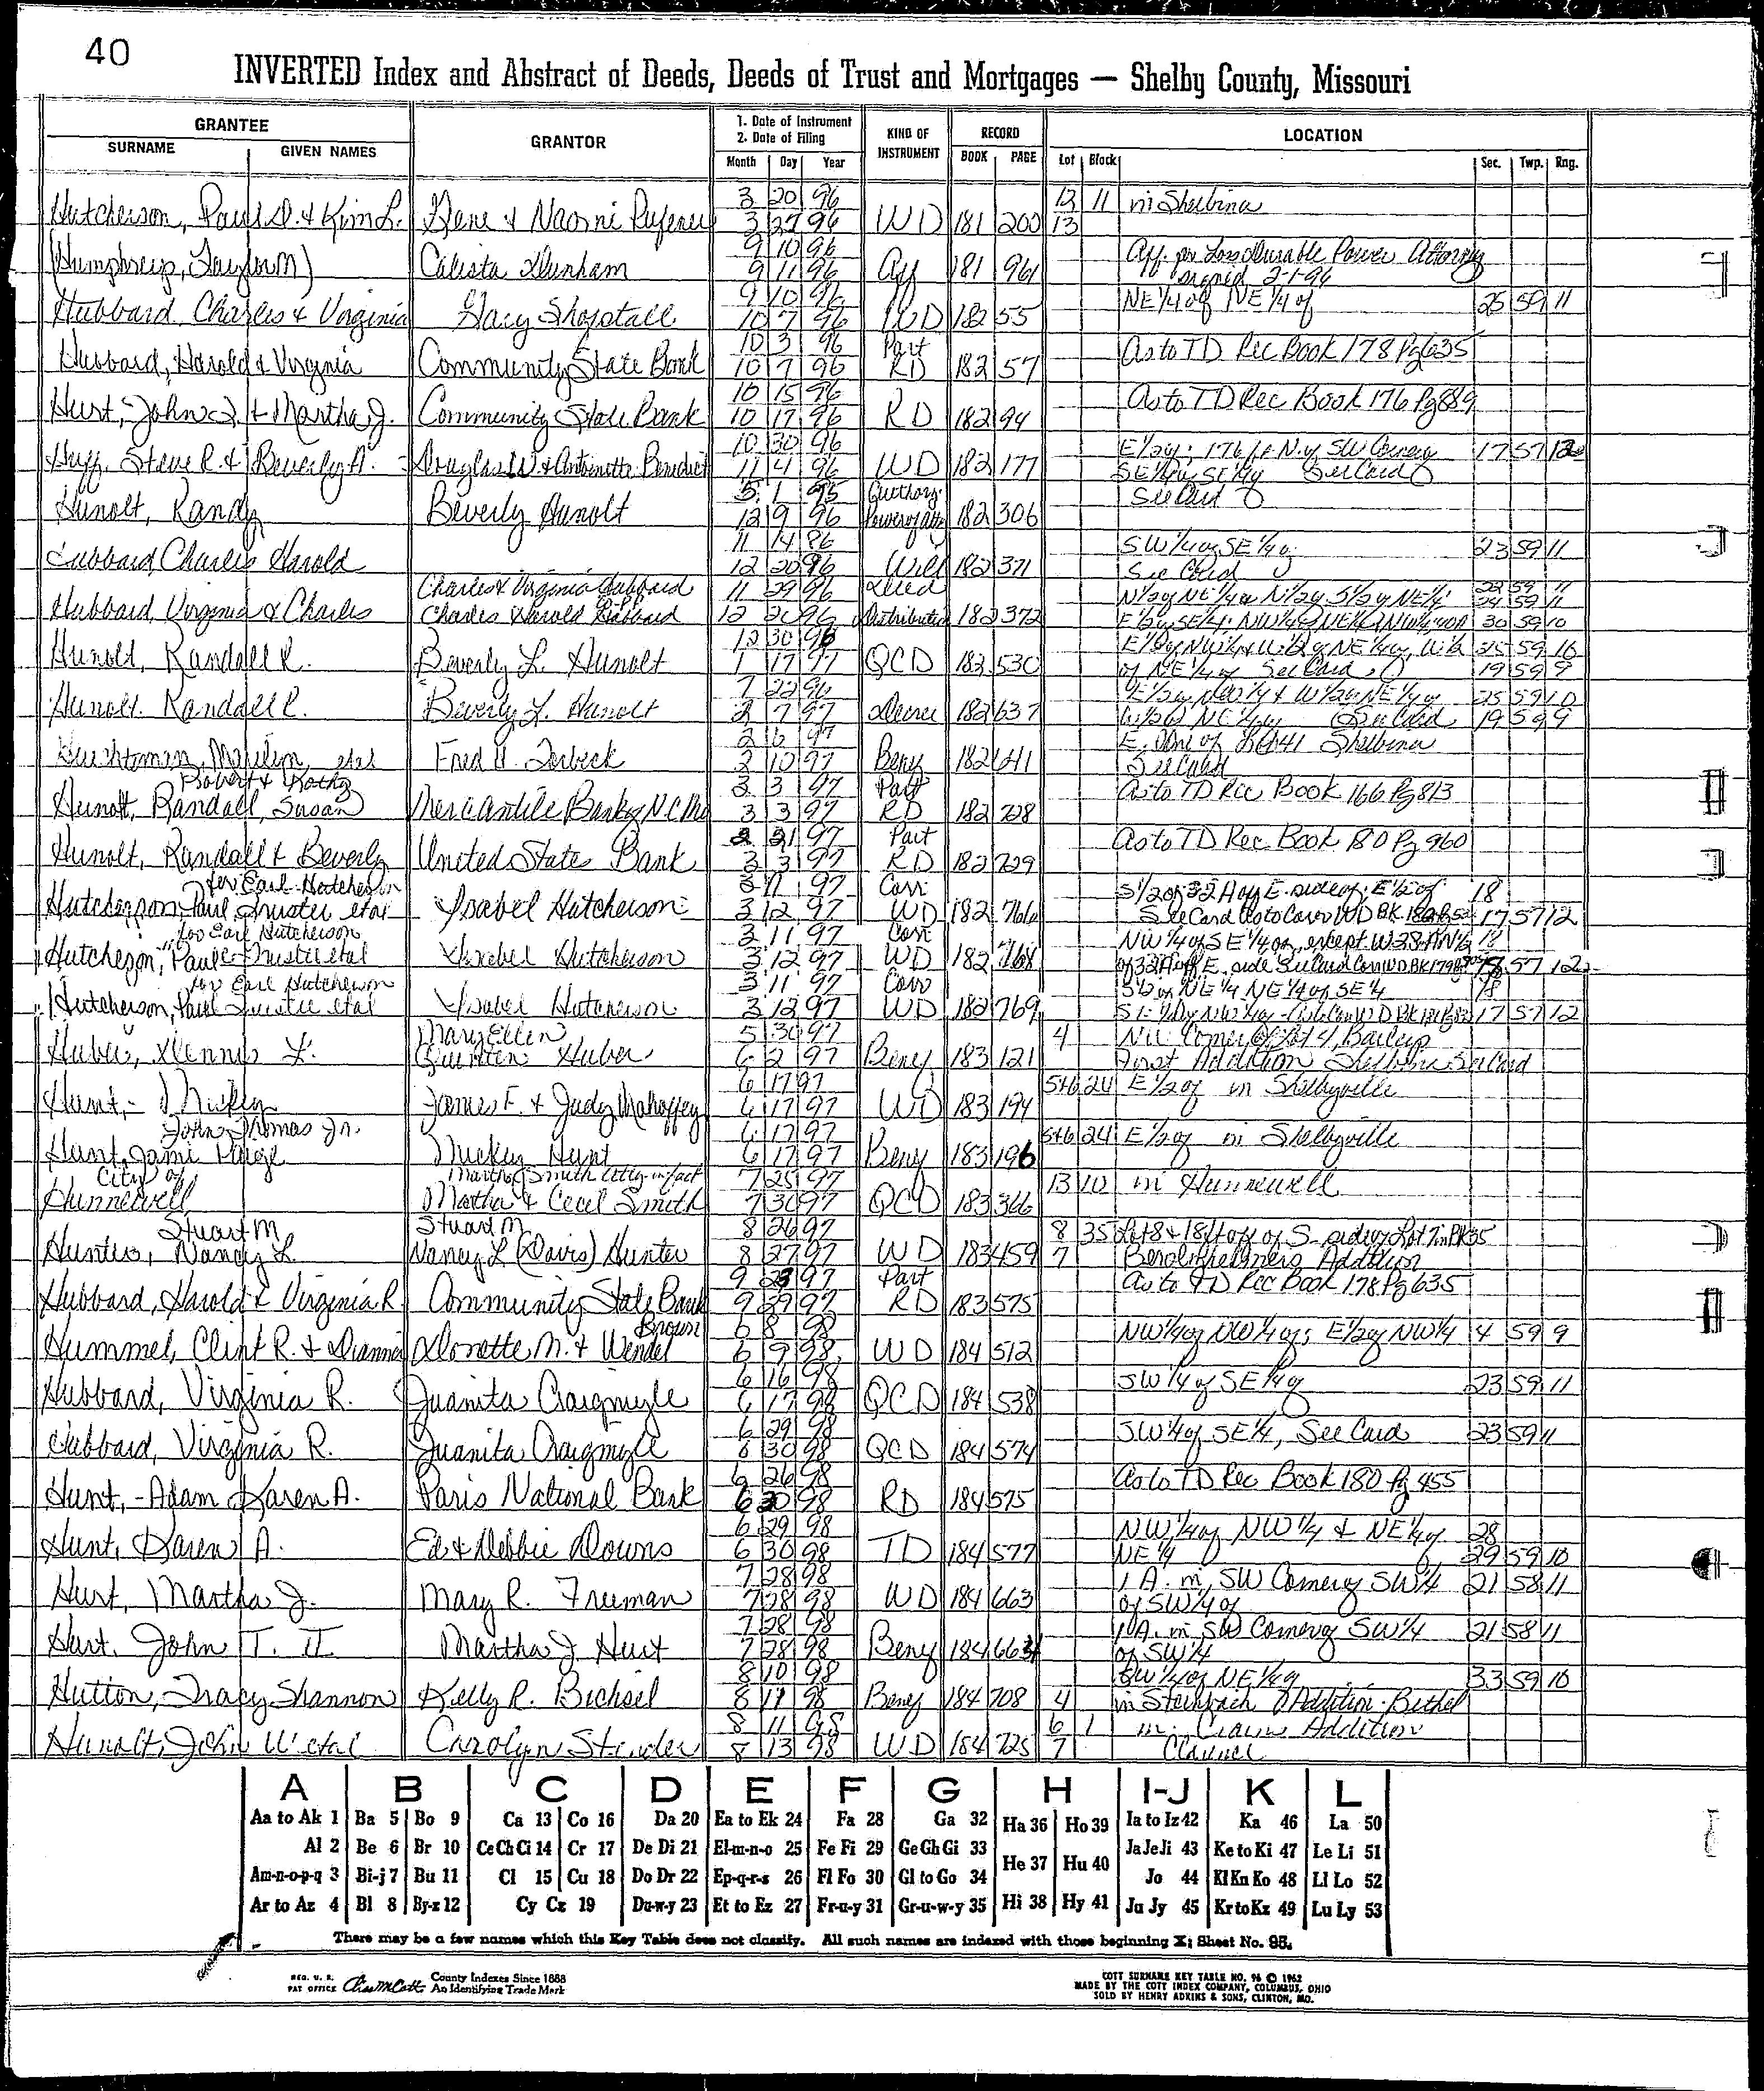 40
INVERTED Index and Abstract of Deeds, Deeds of Trust and Mortgages — Shelby County, Missouri
GRANTEE
SURNAME GIVEN NAMES
GRANTOR
1. Date of Instrument
2. Date of Filing
Month Day Year
KIND OF INSTRUMENT
RECORD
BOOK PAGE
LOCATION
Lot Block Sec. Twp. Rng.
3 20 96 12 11 in Shelbina
Hutcherson, Paul D. & Kim L. Gene & Naomi 3 27 96 WD 181 200 13
9 10 96 Aff. for Durable Power Attorney
(Humphrey, Taylor M) Calista Dunham 9 11 96 Aff 181 961 signed 2-1-96
9 10 96 NE 1/4 of NE 1/4 of 25 59 11
Hubbard Charles & Virginia Gary Shopstall 10 7 96 WD 182 55
10 3 96 Part As to TD Rec Book 178 Pg 635
Hubbard, Harold & Virginia Community State Bank 10 7 96 RD 182 57
10 15 96 As to TD Rec Book 176 Pg 889
Hurt, John & Martha J. Community State Bank 10 17 96 RD 182 94
10 30 96 E 1/2 of; 176 ft N. of SW Corner of 17 57 12
Huff, Steve R. & Beverly A. Douglas W. & Antoinette Benedict 11 4 96 WD 182 177 SE 1/4 of SE 1/4 of See Card
5 1 95 See Card
Hunolt, Randy Beverly Hunolt 12 9 96 Power of Atty 182 306
11 14 86 SW 1/4 of SE 1/4 of 23 59 11
Hubbard Charles Harold 12 20 96 Will 182 371 See Card
Charles & Virginia Hubbard 11 29 96 Deed N 1/2 of NE 1/4 & N 1/2 of S 1/2 of NE 1/4 59 11
Hubbard, Virginia & Charles Charles Harold Hubbard 12 20 96 Distribution 182 372 30 59 10
12 30 96 25 59 10
Hunolt, Randall R. Beverly L. Hunolt 1 17 97 QCD 183 530 of NE 1/4 of See Card 19 59 9
7 22 96 E 1/2 of NW 1/4 & W 1/2 of NE 1/4 of 25 59 10
Hunolt, Randall R. Beverly L. Hunolt 2 7 97 Decree 182 637 See Card 19 59 9
2 6 97 Shelbina
Marilyn, etal Fred W. Torbeck 2 10 97 Beny 182 641 See Card
Robert & Kathy 2 3 97 Part As to TD Rec Book 166 Pg 813
Hunolt, Randall, Susan Mercantile Bank of NC Mo 3 3 97 RD 182 728
2 21 97 Part As to TD Rec Book 180 Pg 960
Hunolt, Randall & Beverly United States Bank 3 3 97 RD 182 729
for Earl Hutcherson 3 11 97 Corr S 1/2 of 32 A off E. side of; E 1/2 of 18
Hutcherson, Paul Trustee etal Ysabel Hutcherson 3 12 97 WD 182 766 See Card 17 57 12
for Earl Hutcherson 3 11 97 Corr NW 1/4 of SE 1/4 of, except 18
Hutcherson, Paul Trustee etal Ysabel Hutcherson 3 12 97 WD 182 768 57 12
for Earl Hutcherson 3 11 97 Corr S 1/2 of NE 1/4 NE 1/4 of SE 1/4 18
Hutcherson, Paul Trustee etal Ysabel Hutcherson 3 12 97 WD 182 769 17 57 12
Mary Ellen 5 30 97 4 NW Corner of Lot 4, Baileys
Huber, Dennis L. Quinten Huber 6 2 97 Beny 183 121 First Addition Shelbina See Card
6 17 97 5+6 24 E 1/2 of in Shelbyville
Hunt, Mickey James F. & Judy Mahaffey 6 17 97 WD 183 194
John Thomas Jr. 6 17 97 5+6 24 E 1/2 of in Shelbyville
Hunt, Jami Paige Mickey Hunt 6 17 97 Beny 183 196
City of Martha Smith atty-in-fact 7 25 97 13 10 in Hunnewell
Hunnewell Martha & Cecil Smith 7 30 97 QCD 183 366
Stuart M Stuart M 8 26 97 8 35 Lot 8 & 18 ft off of S. side of Lot 7 in Bk 35
Hunter, Nancy L. Nancy L (Davis) Hunter 8 27 97 WD 183 459 7 Addition
9 23 97 Part As to TD Rec Book 178 Pg 635
Hubbard, Harold & Virginia R Community State Bank 9 29 97 RD 183 575
Brown 6 8 98 NW 1/4 of NW 1/4 of; E 1/2 of NW 1/4 4 59 9
Hummel, Clint R. & Dianne Donette M. & Wendel 6 9 98 WD 184 512
6 16 98 SW 1/4 of SE 1/4 of 23 59 11
Hubbard, Virginia R. Juanita Craigmyle 6 17 98 QCD 184 538
6 29 98 SW 1/4 of SE 1/4, See Card 23 59 11
Hubbard, Virginia R. Juanita Craigmyle 6 30 98 QCD 184 574
6 26 98 As to TD Rec Book 180 Pg 455
Hunt, Adam Karen A. Paris National Bank 6 30 98 RD 184 575
6 29 98 NW 1/4 of NW 1/4 & NE 1/4 of 28
Hunt, Karen A. Ed & Debbie Downs 6 30 98 TD 184 577 NE 1/4 29 59 10
7 28 98 1 A. in SW Corner of SW 1/4 21 58 11
Hurt, Martha J. Mary R. Freeman 7 28 98 WD 184 663 of SW 1/4 of
7 28 98 1 A. in SW Corner of SW 1/4 21 58 11
Hurt, John T. II Martha J Hurt 7 28 98 Beny 184 664 of SW 1/4
8 10 98 SW 1/4 of NE 1/4 of 33 59 10
Hutton, Tracy Shannon Kelly R. Bichsel 8 11 98 Beny 184 708 4 in Steinbach Addition Bethel
8 11 98 6 1 in Addition
Hunolt, John W etal Carolyn Studer 8 13 98 WD 184 725 7 Clarence
A B C D E F G H I-J K L
Aa to Ak 1 Ba 5 Bo 9 Ca 13 Co 16 Da 20 Ea to Ek 24 Fa 28 Ga 32 Ha 36 Ho 39 Ia to Iz 42 Ka 46 La 50
Al 2 Be 6 Br 10 Ce Ch Ci 14 Cr 17 De Di 21 El-m-n-o 25 Fe Fi 29 Ge Gh Gi 33 He 37 Hu 40 Ja Je Ji 43 Ke to Ki 47 Le Li 51
Am-n-o-p-q 3 Bi-j 7 Bu 11 Cl 15 Cu 18 Do Dr 22 Ep-q-r-s 26 Fl Fo 30 Gl to Go 34 Jo 44 Kl Kn Ko 48 Ll Lo 52
Ar to Az 4 Bl 8 By-z 12 Cy Cz 19 Du-w-y 23 Et to Ez 27 Fr-u-y 31 Gr-u-w-y 35 Hi 38 Hy 41 Ju Jy 45 Kr to Kz 49 Lu Ly 53
There may be a few names which this Key Table does not classify. All such names are indexed with those beginning X; Sheet No. 95.
REG. U. S. PAT OFFICE County Indexes Since 1888 An Identifying Trade Mark
COTT SURNAME KEY TABLE NO. 96 © 1962
MADE BY THE COTT INDEX COMPANY, COLUMBUS, OHIO
SOLD BY HENRY ADKINS & SONS, CLINTON, MO.